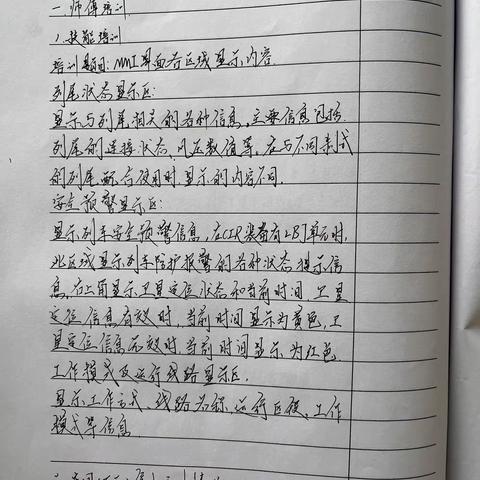 一.师傅培训
1.技能培训
培训题目:MMI界面各区域显示内容
列尾状态显示区:
显示与列尾相关的各种信息,主要信息包括
列尾的连接状态、风压数值等,在与不同制式
的列尾配合使用时,显示的内容不同.
安全预警显示区:
显示列车安全预警信息,在CIR装备有LBJ单元时,
此区域显示列车防护报警的各种状态提示信
息,右上角显示卫星定位状态和当前时间,卫星
定位信息有效时,当前时间显示为黄色,卫
星定位信息无效时,当前时间显示为红色.
工作模式及运行线路显示区.
显示工作方式、线路名称、运行区段、工作
模式等信息.